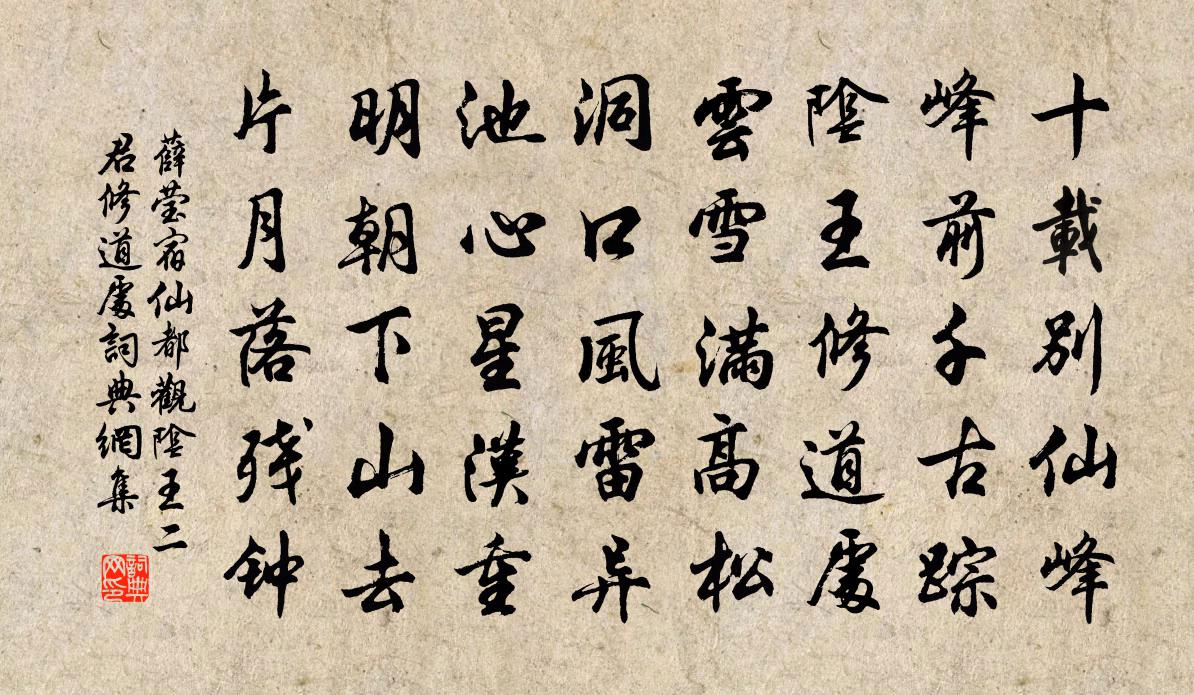 十載別仙峰
峰前千古踪
陰王修道處
雲雪滿高松
洞口風雷异
池心星漢重
明朝下山去
片月落残钟
薛莹宿仙都觀陰王二
君修道處詞典網集
詞典
网印